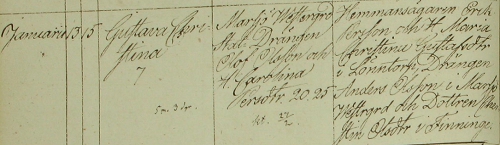 Januari 13 15 Gustava Chri-
stina
7
5 m. 3 kr.
Marsjö Westergrd
Stat Drängen
Olof Olsson och
H. Carolina
Persdtr 20, 25
Hemmansägaren Erik
Person och H. Maria
Christina Gustafsdtr
i Lönntorp, Drängen
Anders Olsson i Marsjö
Westrgrd och Dottren
Stin Olsdtr i Finninge